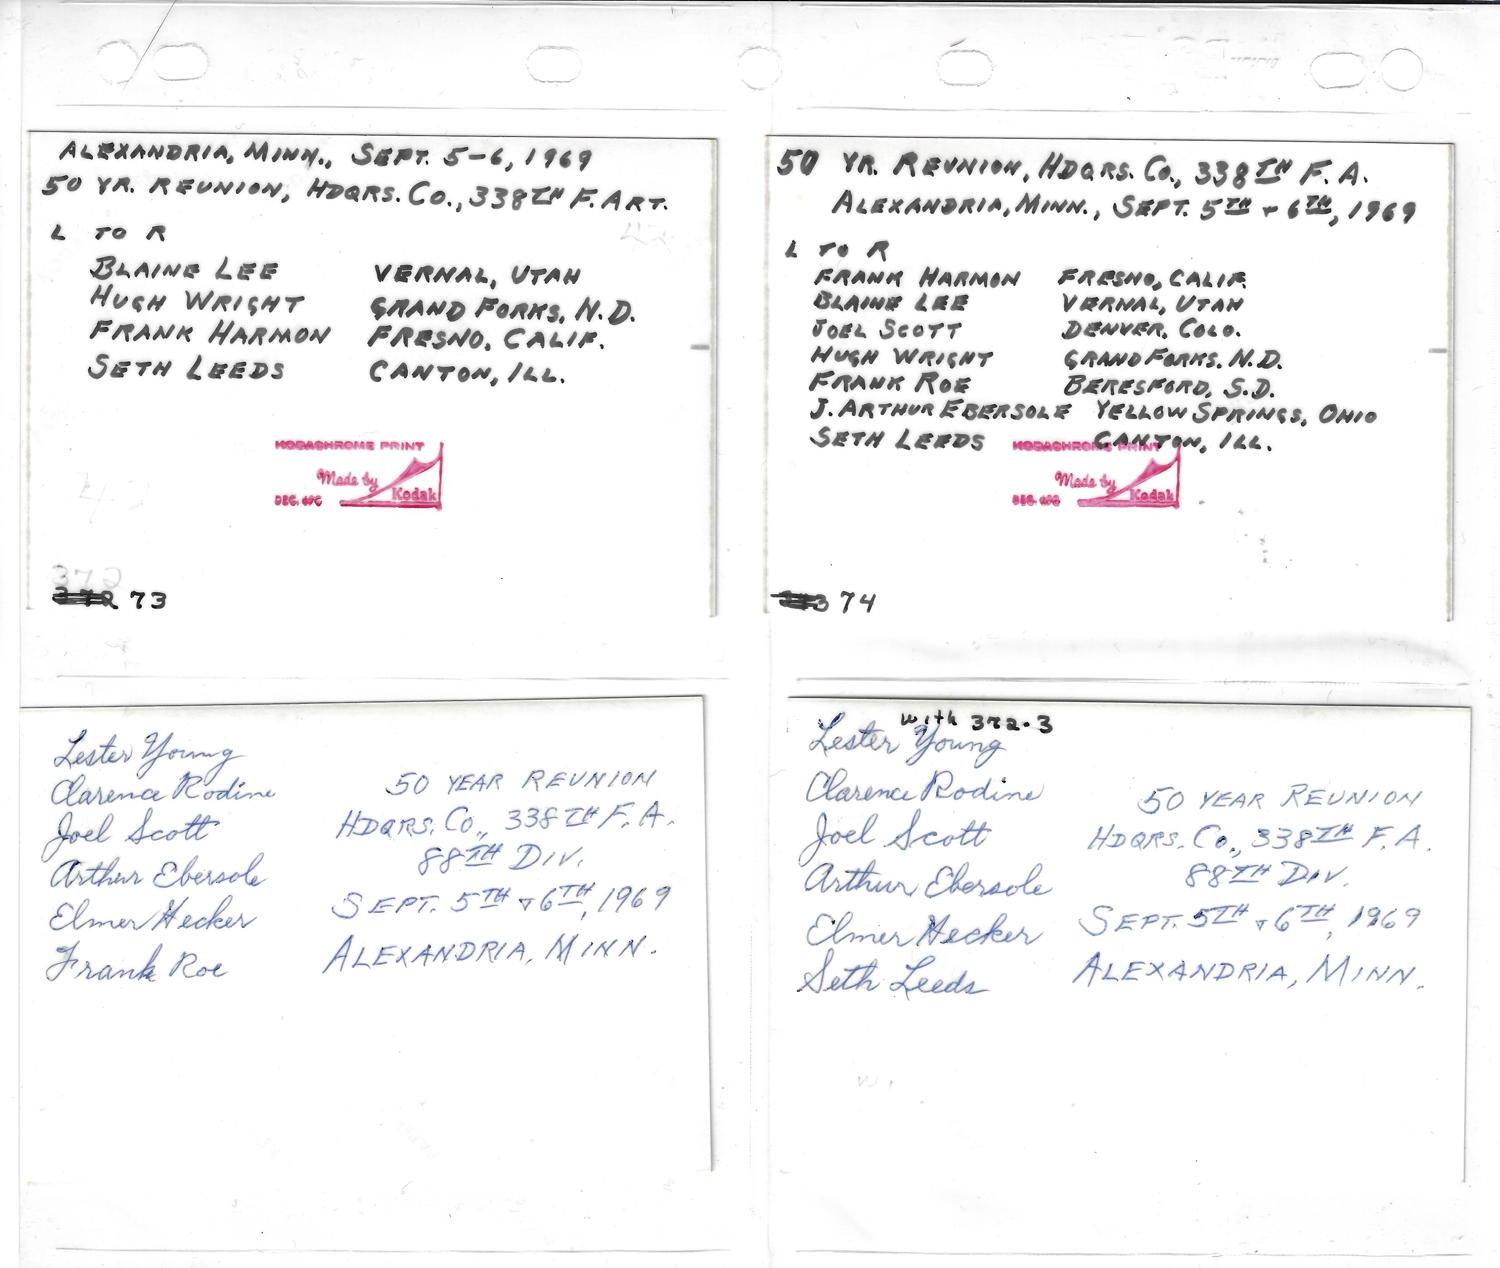 ALEXANDRIA, MINN., SEPT. 5-6, 1969
50 YR. REUNION, HDQRS. CO., 338TH F. ART.
L TO R
BLAINE LEE VERNAL, UTAH
HUGH WRIGHT GRAND FORKS, N.D.
FRANK HARMON FRESNO, CALIF.
SETH LEEDS CANTON, ILL.
KODACHROME PRINT
Made by
Kodak
DEC. 69C
372
372 73
50 YR. REUNION, HDQRS. CO., 338TH F. A.
ALEXANDRIA, MINN., SEPT. 5TH & 6TH, 1969
L TO R
FRANK HARMON FRESNO, CALIF.
BLAINE LEE VERNAL, UTAH
JOEL SCOTT DENVER, COLO.
HUGH WRIGHT GRAND FORKS, N.D.
FRANK ROE BERESFORD, S.D.
J. ARTHUR EBERSOLE YELLOW SPRINGS, OHIO
SETH LEEDS CANTON, ILL.
KODACHROME PRINT
Made by
Kodak
DEC. 69C
74
Lester Young
Clarence Rodine
Joel Scott
Arthur Ebersole
Elmer Hecker
Frank Roe
50 YEAR REUNION
HDQRS. CO., 338TH F. A.
88TH DIV.
SEPT. 5TH & 6TH, 1969
ALEXANDRIA, MINN.
with 372-3
Lester Young
Clarence Rodine
Joel Scott
Arthur Ebersole
Elmer Hecker
Seth Leeds
50 YEAR REUNION
HDQRS. CO., 338TH F. A.
88TH DIV.
SEPT. 5TH & 6TH, 1969
ALEXANDRIA, MINN.